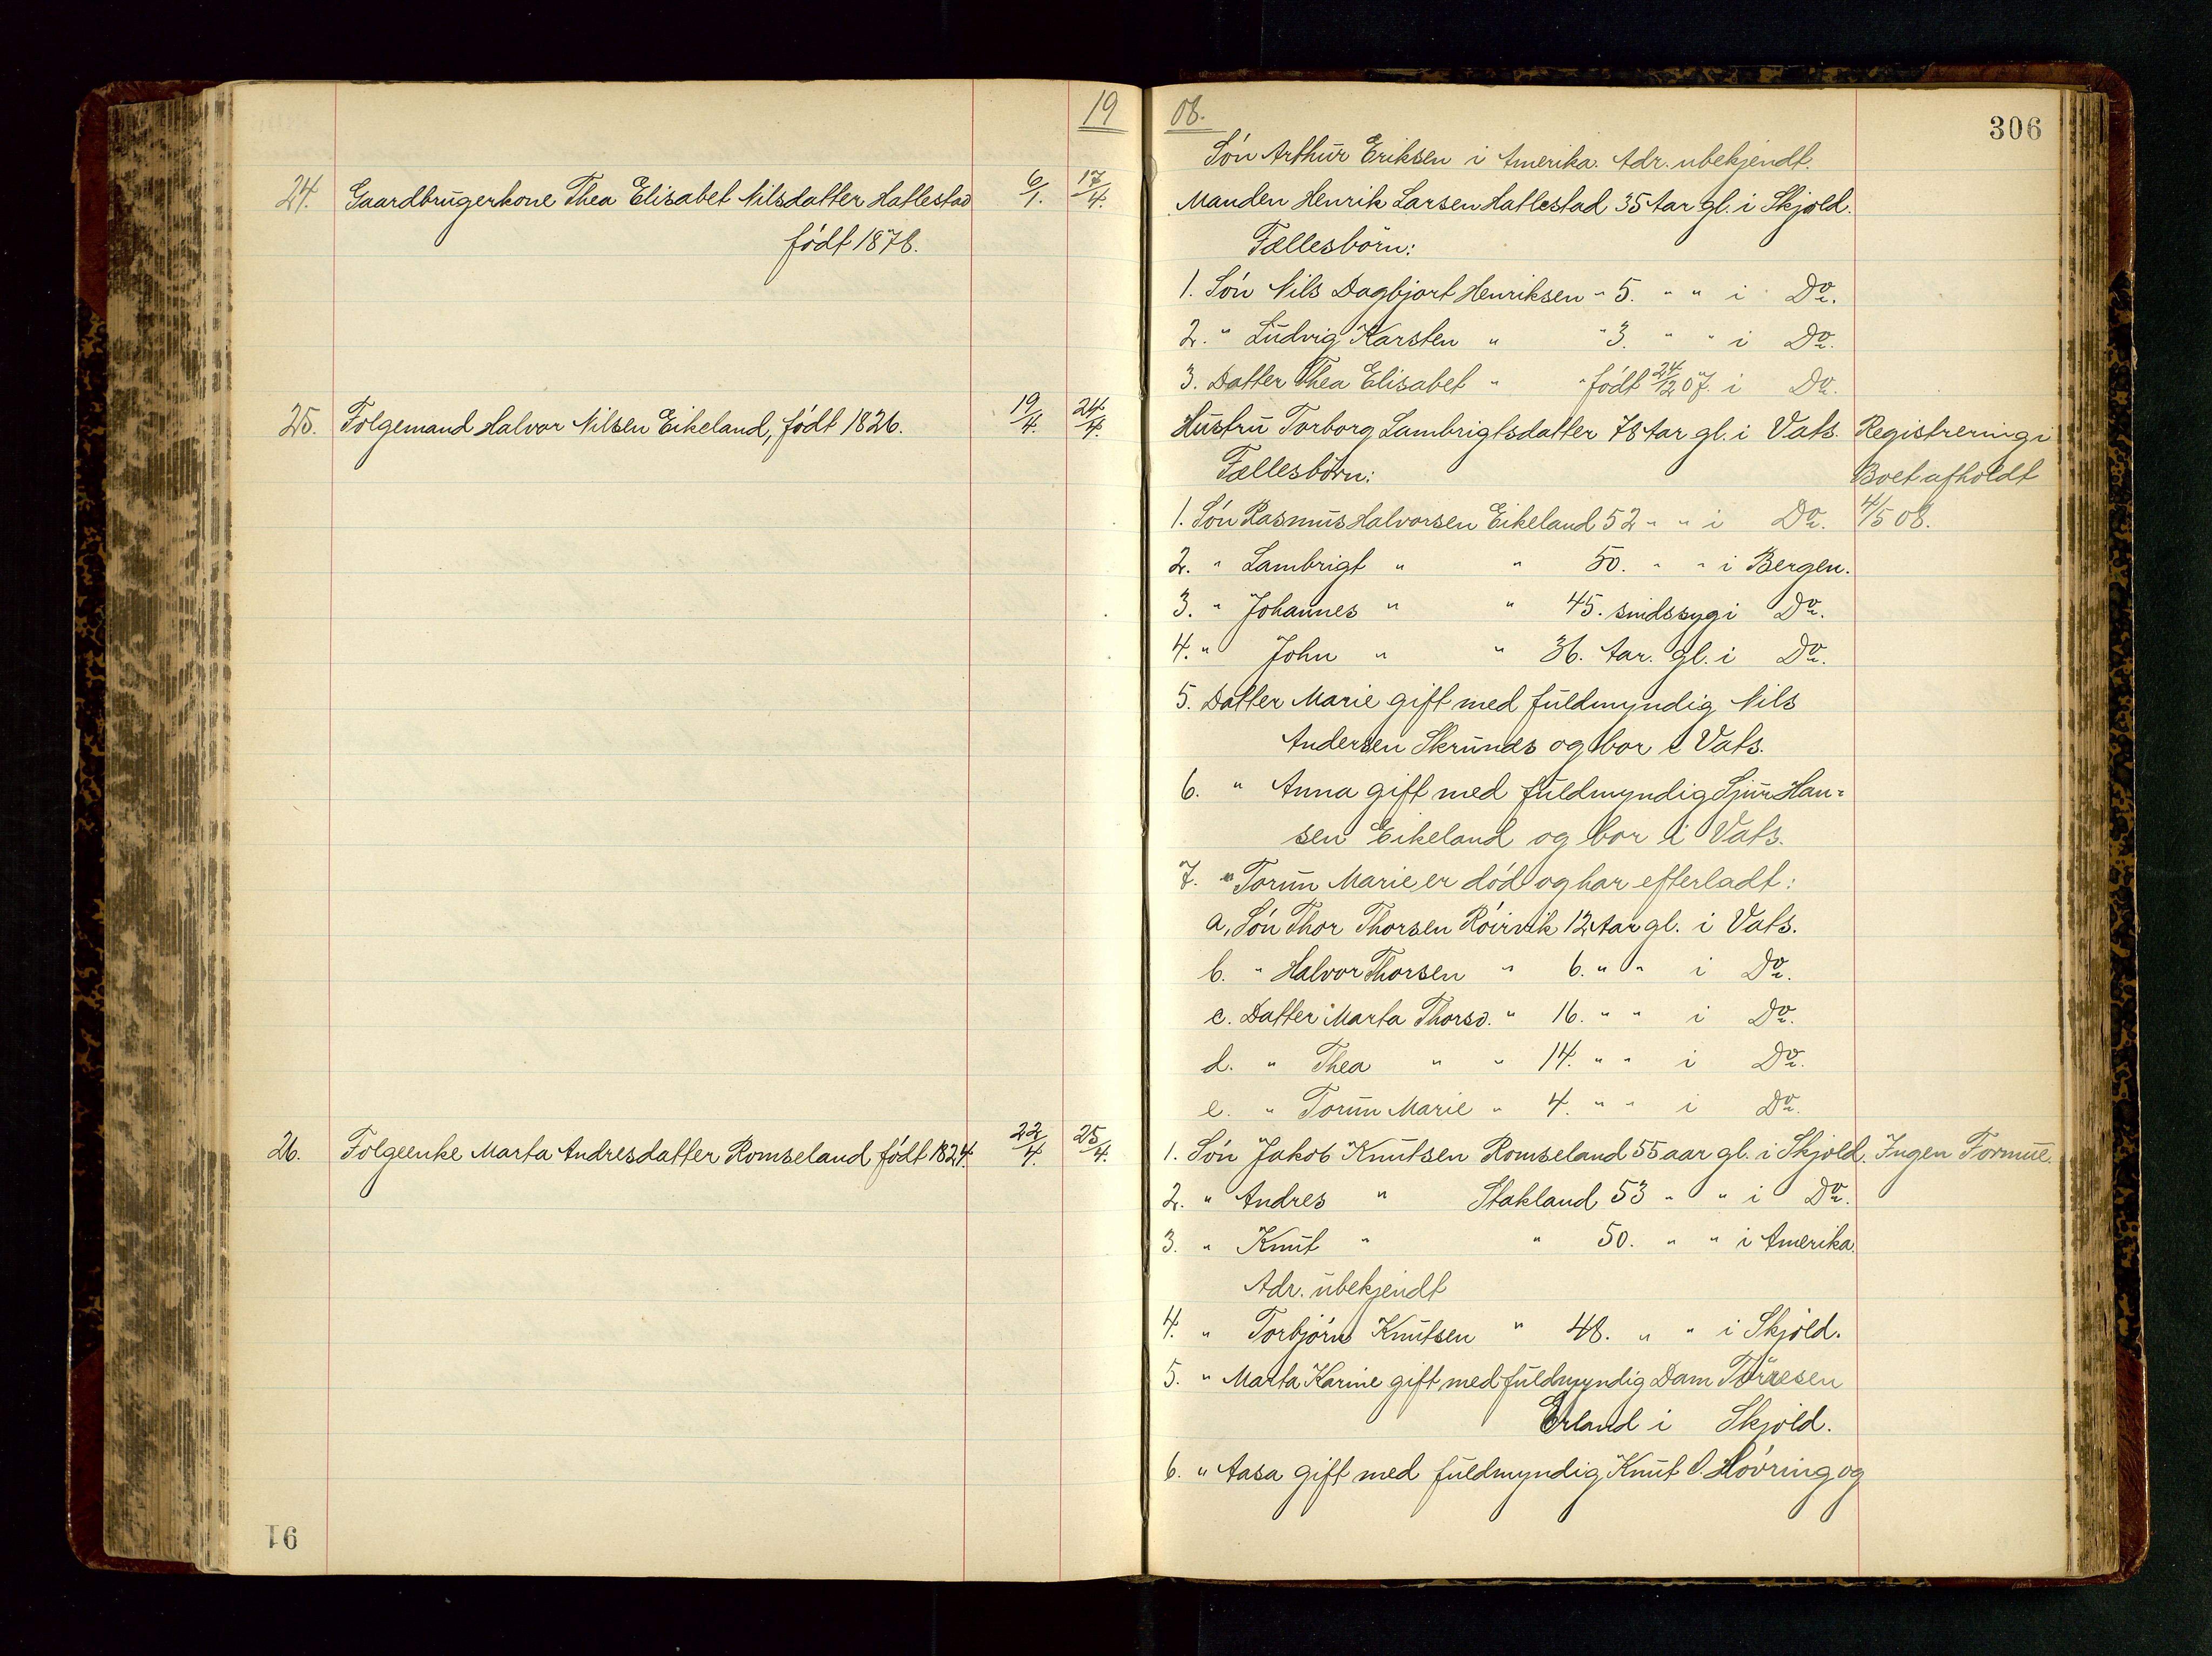 19
24. Gaardbrugerkone Thea Elisabet Nilsdatter Hatlestad 6/1. 17/4.
født 1876.
25. Folgemand Halvor Nilsen Eikeland, født 1826. 19/4. 24/4.
26. Folgeenke Marta Andresdatter Romseland født 1824. 22/4. 25/4.
91
08.
306
Søn Arthur Eriksen i Amerika. Adr. ubekjendt.
Manden Henrik Larsen Hatlestad 35 Aar gl. i Skjold.
Fællesbørn:
1. Søn Nils Dagbjort Henriksen " 5. " " i Do.
2. " Ludvig Karsten " " 3. " " i Do.
3. Datter Thea Elisabet " " født 24/12 07. i Do.
Hustru Torborg Lambrigtsdatter 78 Aar gl. i Vats. Registrering i
Fællesbørn: Boet afholdt
1. Søn Rasmus Halvorsen Eikeland 52 " " i Do. 4/5 08.
2. " Lambrigt " " 50. " " i Bergen.
3. " Johannes " " 45. sindssyg i Do.
4. " John " " 36. Aar. gl. i Do.
5. Datter Marie gift med fuldmyndig Nils
Andersen Skrunes og bor i Vats.
6. " Anna gift med fuldmyndig Sjur Han=
sen Eikeland og bor i Vats.
7. " Torun Marie er død og har efterladt:
a, Søn Thor Thorsen Røirvik 12 Aar gl. i Vats.
b. " Halvor Thorsen " 6. " " i Do.
c. Datter Marta Thorsd. " 16. " " i Do.
d. " Thea " " 14. " " i Do.
e. " Torun Marie " 4. " " i Do.
1. Søn Jakob Knutsen Romseland 55 aar gl. i Skjold. Ingen Formue.
2. " Andres " Stakland 53 " " i Do.
3. " Knut " " 50. " " i Amerika.
Adr. ubekjendt
4. " Torbjørn Knutsen " 48. " " i Skjold.
5. " Marta Karine gift med fuldmyndig Dam Tørresen
Erland i Skjold.
6. " Aasa gift med fuldmyndig Knut O. Høvring og